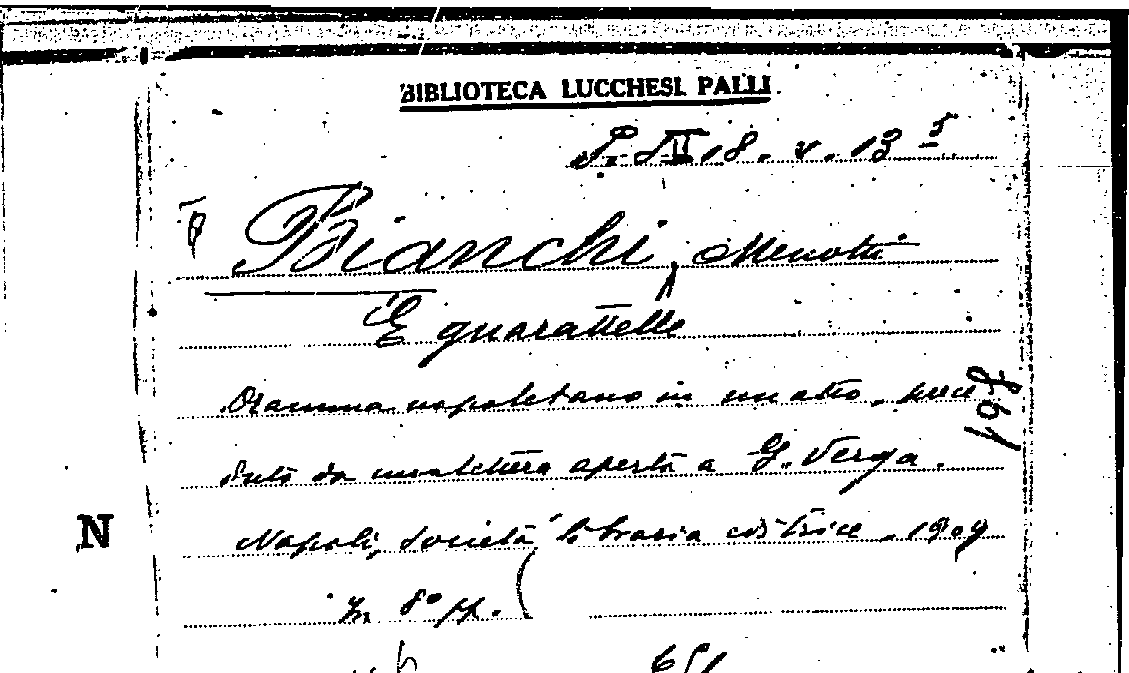 BIBLIOTECA LUCCHESI PALLI
18. v. 13 5
Bianchi, Menotti
E guarattelle
Dramma napoletano in un atto, prece
duto da una lettera aperta a G. Verga.
Napoli, Società libraria editrice. 1909
In 8° pp.
198
N